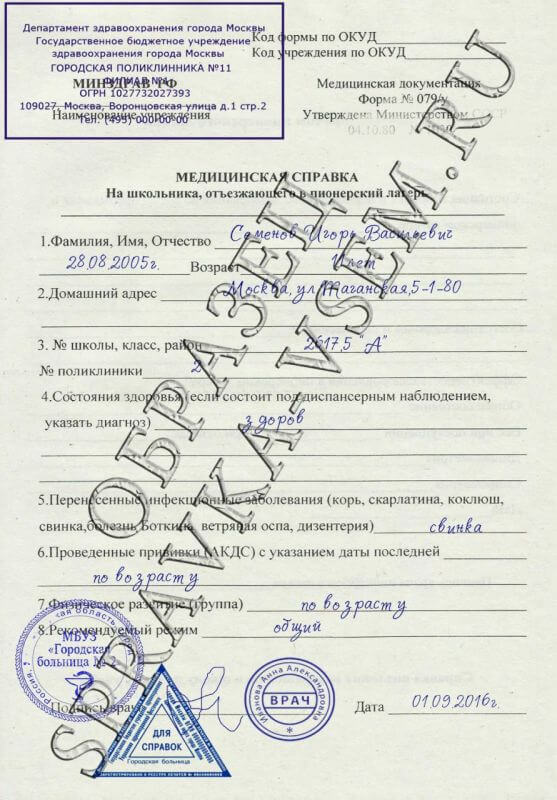 Департамент здравоохранения города Москвы
Государственное бюджетное учреждение
здравоохранения города Москвы
ГОРОДСКАЯ ПОЛИКЛИННИКА №11
ФИЛИАЛ №4
ОГРН 1027732027393
109027, Москва, Воронцовская улица д.1 стр.2
Тел. (495) 000-00-00
МИНЗДРАВ РФ
Наименование учреждения
Код формы по ОКУД
Код учреждения по ОКУД
Медицинская документация
Форма № 079/у
Утверждена Министерством СССР
04.10.80 №
МЕДИЦИНСКАЯ СПРАВКА
На школьника, отъезжающего в пионерский лагерь
1.Фамилия, Имя, Отчество Семенов Игорь Васильевич
28.08.2005г. Возраст 11 лет
2.Домашний адрес Москва, ул Таганская,5-1-80
3. № школы, класс, район 2617,5 "А"
№ поликлиники 2
4.Состояния здоровья (если состоит под диспансерным наблюдением,
указать диагноз) здоров
5.Перенесенные инфекционные заболевания (корь, скарлатина, коклюш,
свинка,болезнь Боткина, ветряная оспа, дизентерия) свинка
6.Проведенные прививки (АКДС) с указанием даты последней
по возрасту
7.Физическое развитие (группа) по возрасту
8.Рекомендуемый режим общий
МБУЗ
«Городская
больница № 2
Подпись врача
Иванова Анна Александровна
ВРАЧ
Дата 01.09.2016г.
ДЛЯ
СПРАВОК
Городская больница
ОБРАЗЕЦ
SPRAVKA-VSEM.RU